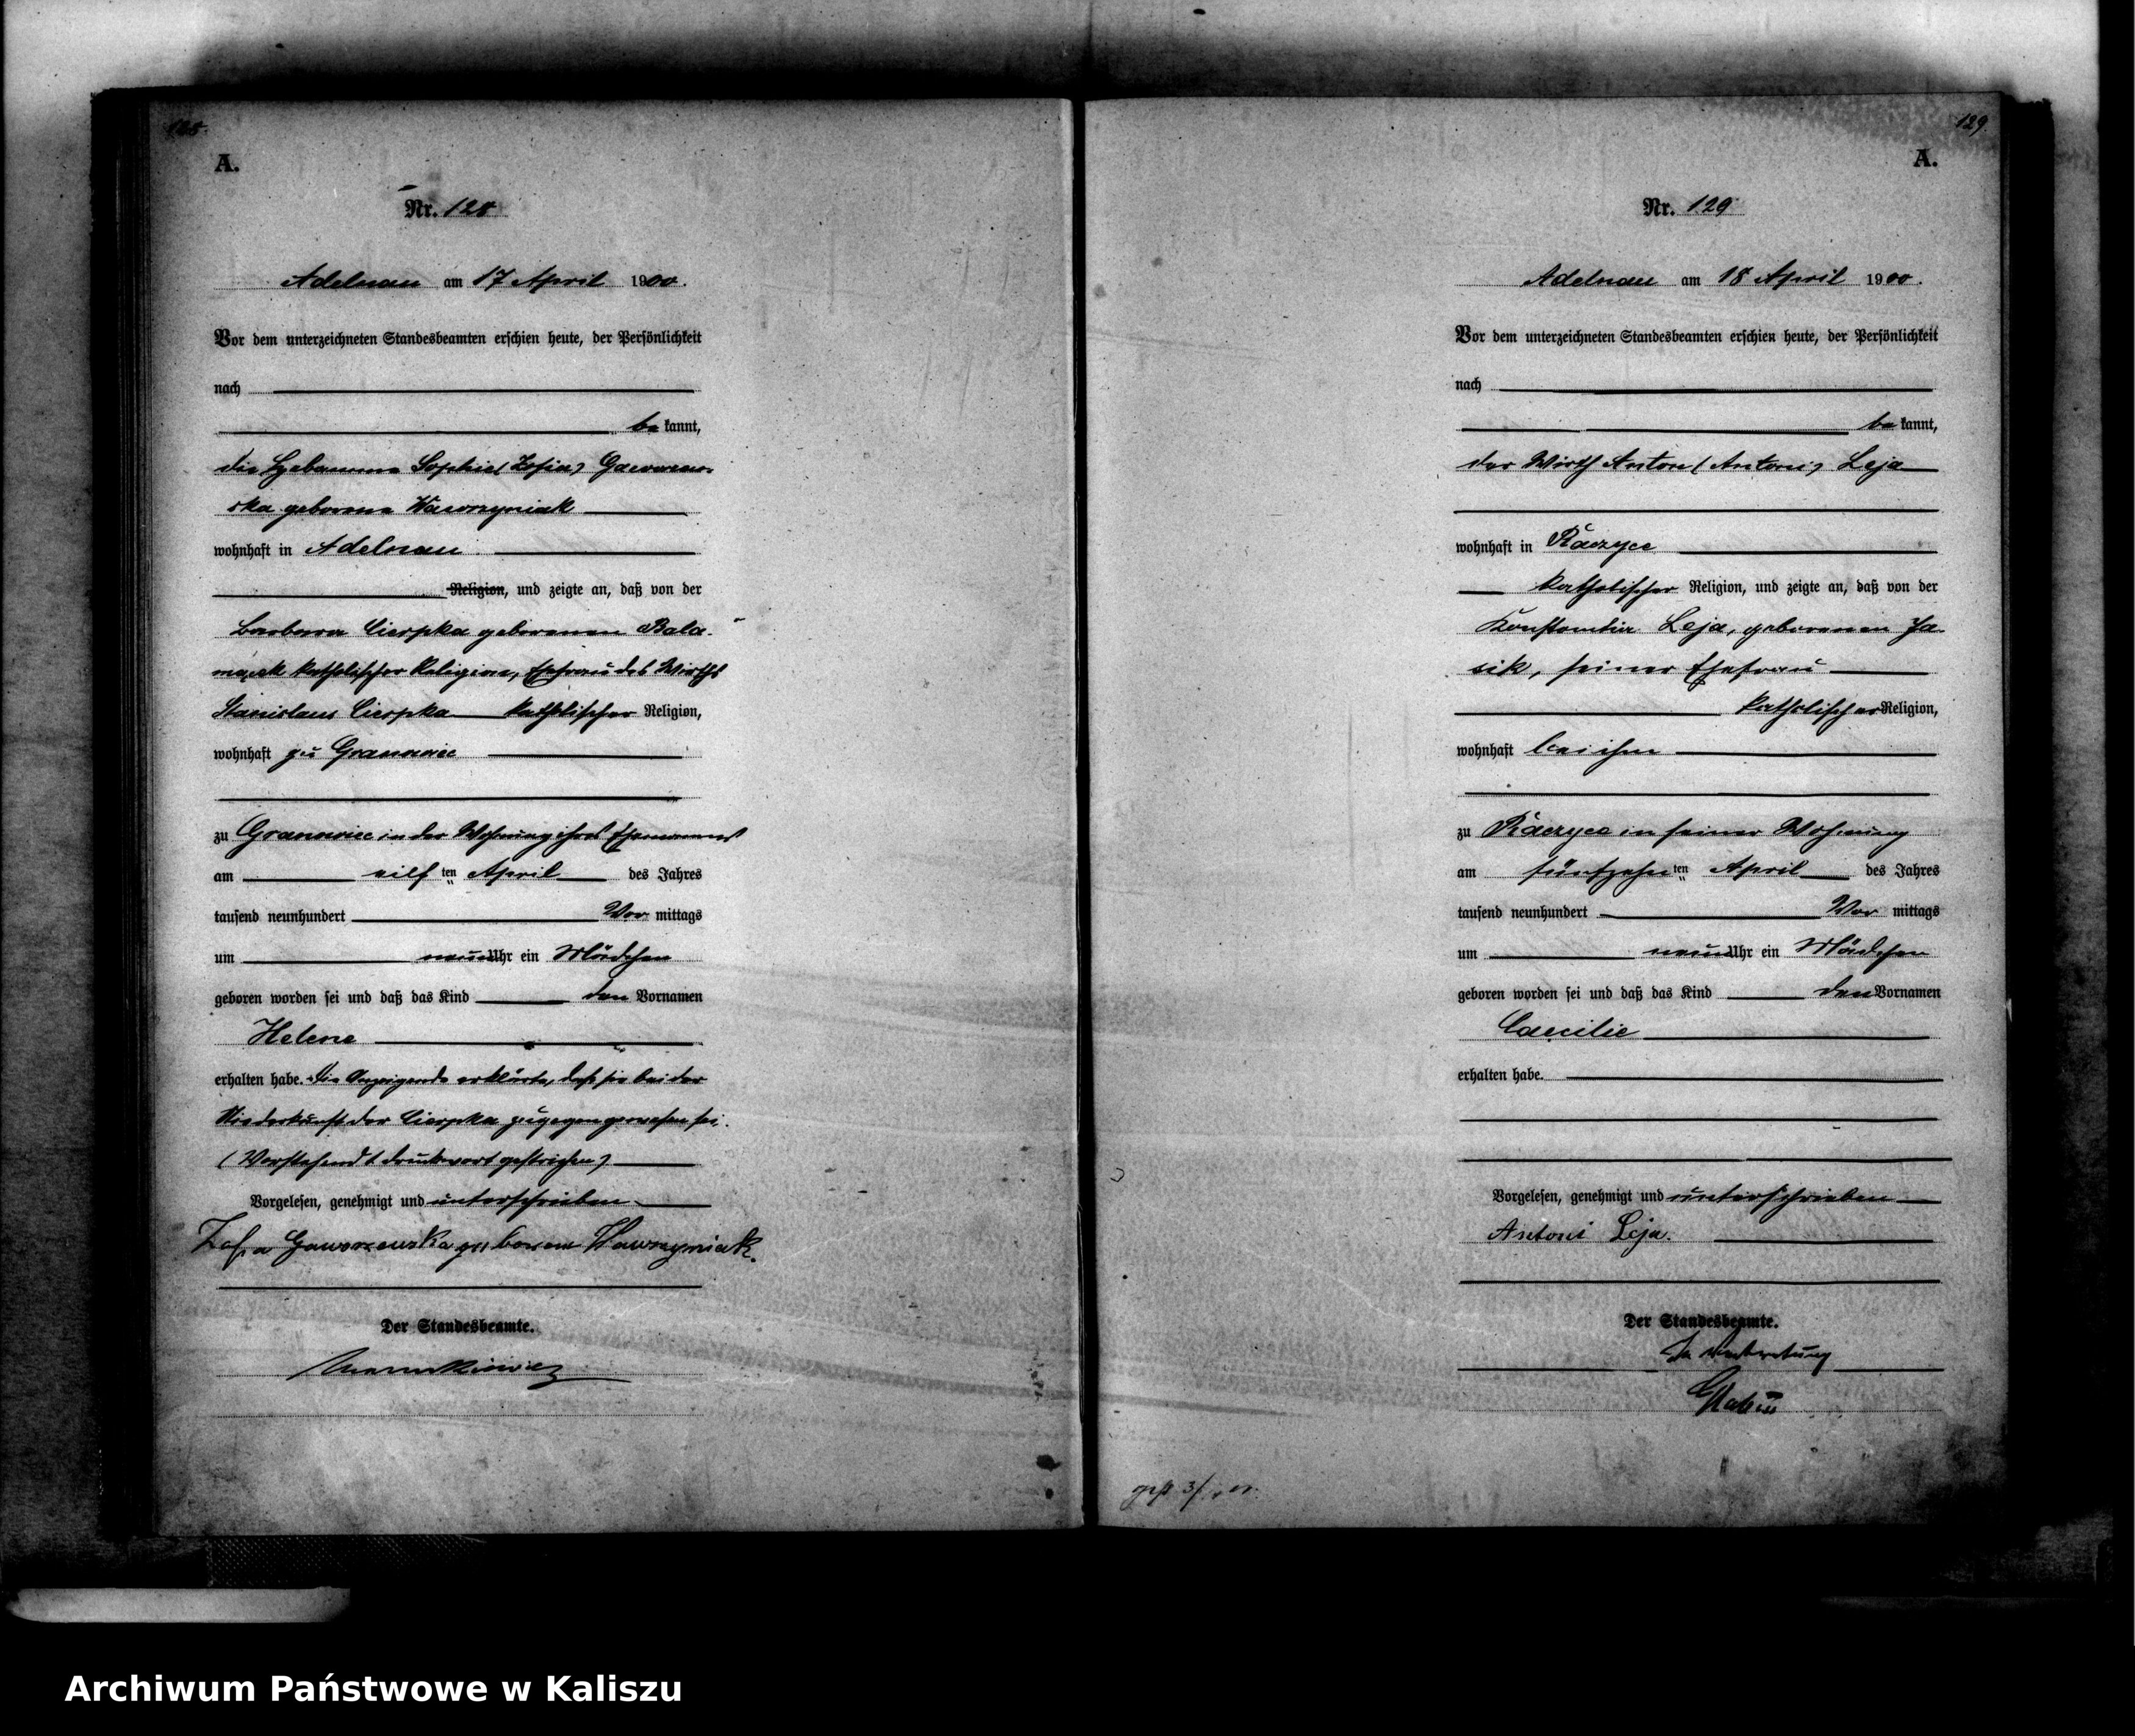 128.
A.
Nr. 128
Adelnau am 17 April 1900.
Vor dem unterzeichneten Standesbeamten erschien heute, der Persönlichkeit
nach
be kannt,
die Hebamme Sophie (Zofia) Gaworzew-
ska geborene Wawrzyniak
wohnhaft in Adelnau
Religion, und zeigte an, daß von der
Barbara Cierpka geborenen Bala-
majcek katholischer Religion, Ehefrau des Wirths
Stanislaus Cierpka katholischer Religion,
wohnhaft zu Granowiec
zu Granowiec in der Wohnung ihres Ehemannes
am eilf ten April des Jahres
tausend neunhundert Vor mittags
um neun Uhr ein Mädchen
geboren worden sei und daß das Kind den Vornamen
Helene
erhalten habe. Die Anzeigende erklärte, daß sie bei der
Niederkunft der Cierpka zugegen gewesen sei.
(Vorstehend 1 Druckwort gestrichen)
Vorgelesen, genehmigt und unterschrieben
Zofia Gaworzewska geborene Wawrzyniak.
Der Standesbeamte.
129
A.
Nr. 129
Adelnau am 18 April 1900.
Vor dem unterzeichneten Standesbeamten erschien heute, der Persönlichkeit
nach
be kannt,
der Wirth Anton (Antoni) Leja
wohnhaft in Raczyce
katholischer Religion, und zeigte an, daß von der
Konstantia Leja, geborenen Ja-
sik, seiner Ehefrau
katholischer Religion,
wohnhaft bei ihm
zu Raczyce in seiner Wohnung
am fünfzehn ten April des Jahres
tausend neunhundert Vor mittags
um neun Uhr ein Mädchen
geboren worden sei und daß das Kind den Vornamen
Caecilie
erhalten habe.
Vorgelesen, genehmigt und unterschrieben
Antoni Leja.
Der Standesbeamte.
In Vertretung
Archiwum Państwowe w Kaliszu